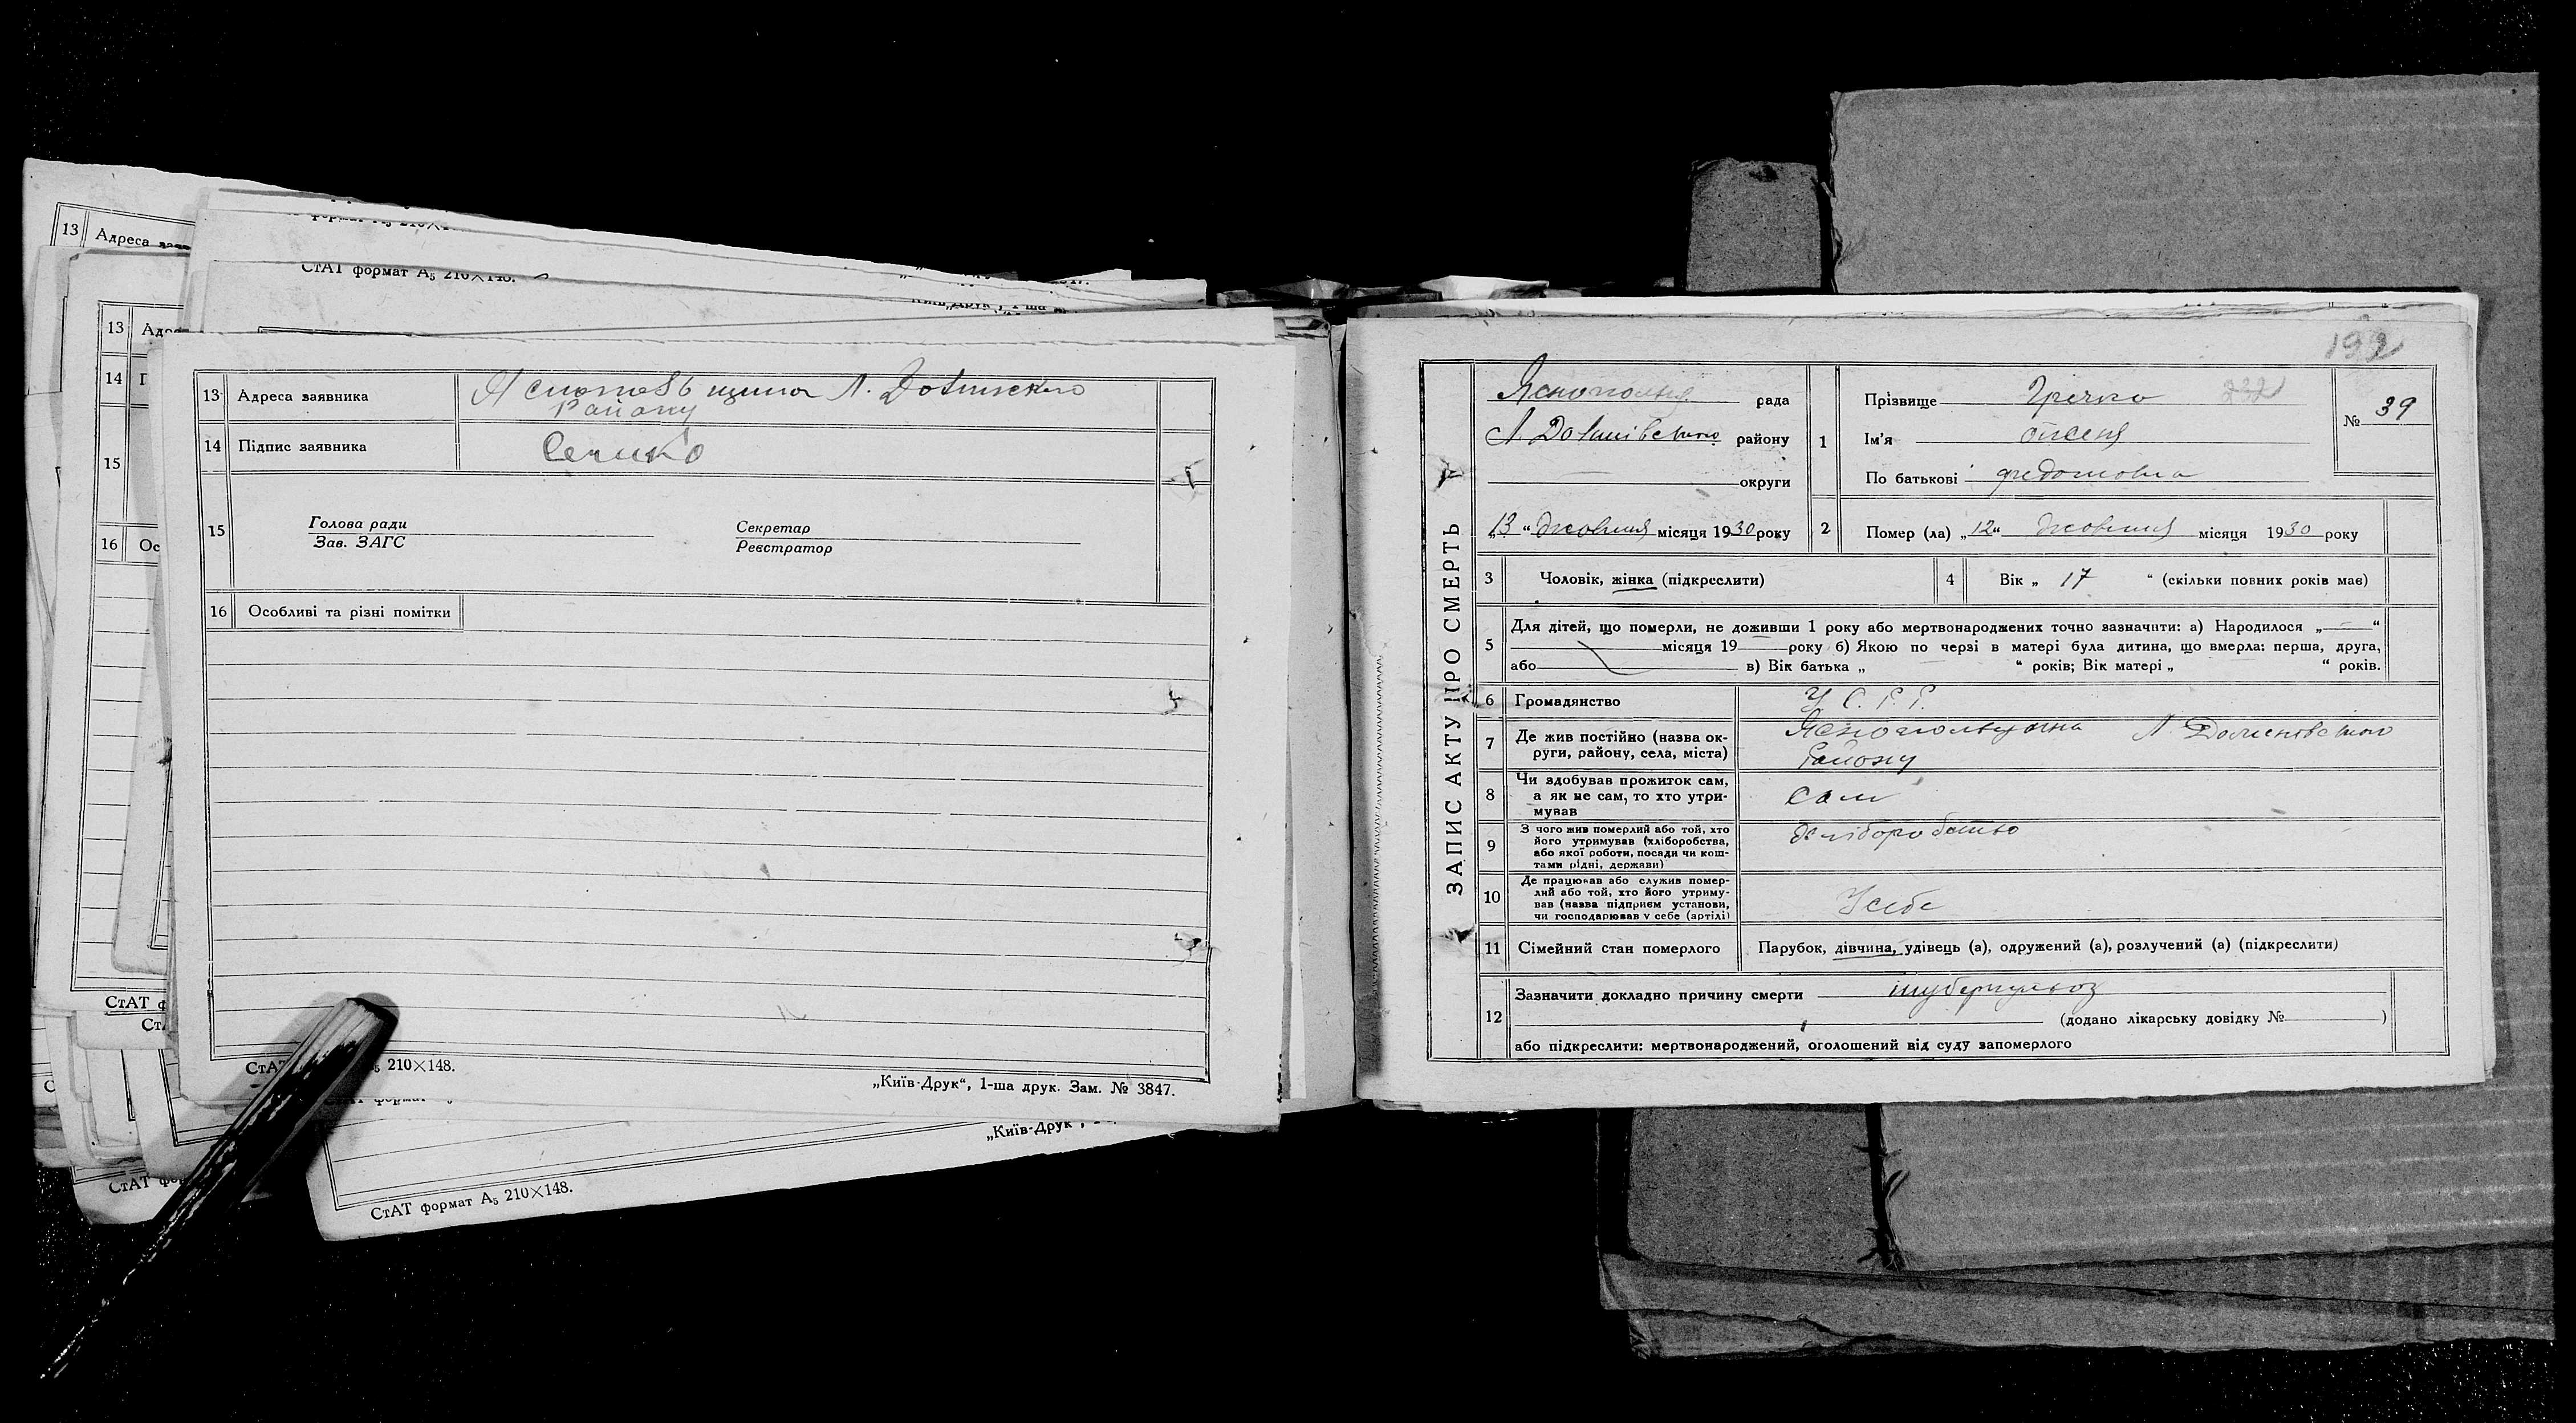 13 Адреса зая
13 Адре
14 Г
15
16 Ос
СтАТ формат А5 210×148.
13 Адреса заявника
района
14 Підпис заявника
15 Голова ради Секретар
Зав. ЗАГС Реєстратор
16 Особливі та різні помітки
СтАТ 5 210×148.
„Київ-Друк“, 1-ша друк. Зам. № 3847.
„Київ-Друк“,
СтАТ формат А5 210×148.
ЗАПИС АКТУ ПРО СМЕРТЬ
192
рада
району
округи
„13“ жовтня місяця 1930 року
1 Прізвище Гречко 232
Ім'я
По батькові Федотовна
№ 39
2 Помер (ла) „12“ жовтня місяця 1930 року
3 Чоловік, жінка (підкреслити)
4 Вік „ 17 “ (скільки повних років має)
5 Для дітей, що померли, не доживши 1 року або мертвонароджених точно зазначити: а) Народилося „ “
місяця 19 року б) Якою по черзі в матері була дитина, що вмерла: перша, друга,
або в) Вік батька „ “ років; Вік матері „ “ років.
6 Громадянство У.С.Р.Р.
7 Де жив постійно (назва ок-
руги, району, села, міста)
Району
8 Чи здобував прожиток сам,
а як не сам, то хто утри-
мував
сам
9 З чого жив померлий або той, хто
його утримував (хліборобства,
або якої роботи, посади чи кош-
тами рідні, держави)
хліборобство
10 Де працював або служив помер-
лий або той, хто його утриму-
вав (назва підприєм установи,
чи господарював у себе (артілі)
У себе
11 Сімейний стан померлого Парубок, дівчина, удівець (а), одружений (а), розлучений (а) (підкреслити)
12 Зазначити докладно причину смерти туберкульоз
(додано лікарську довідку № )
або підкреслити: мертвонароджений, оголошений від суду запомерлого